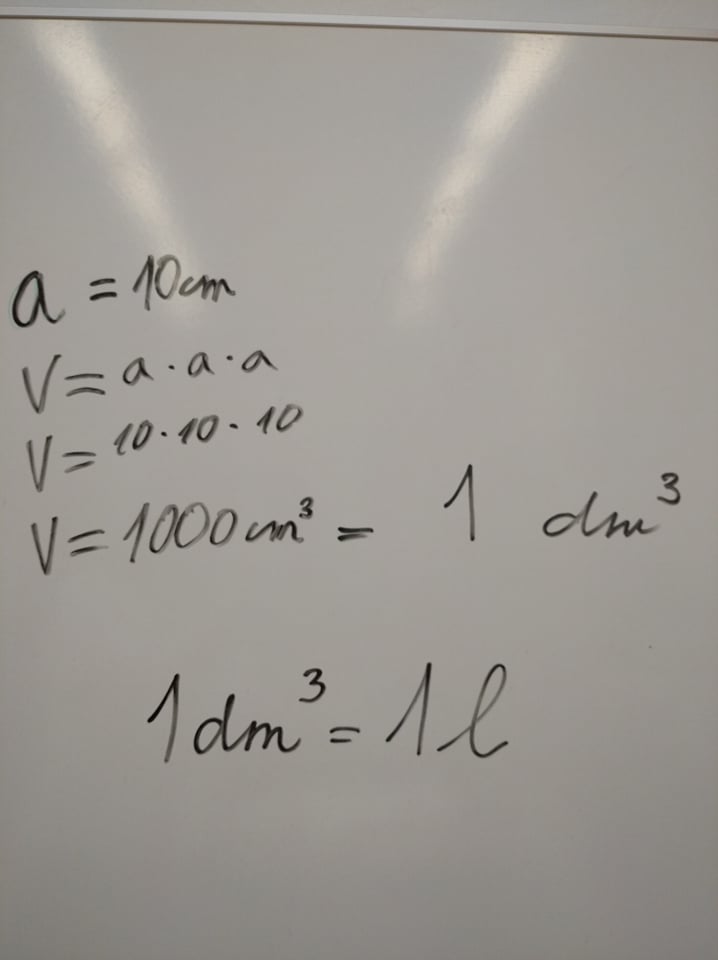 a = 10cm
V = a · a · a
V = 10 · 10 · 10
V = 1000 cm³ = 1 dm³
1 dm³ = 1 l